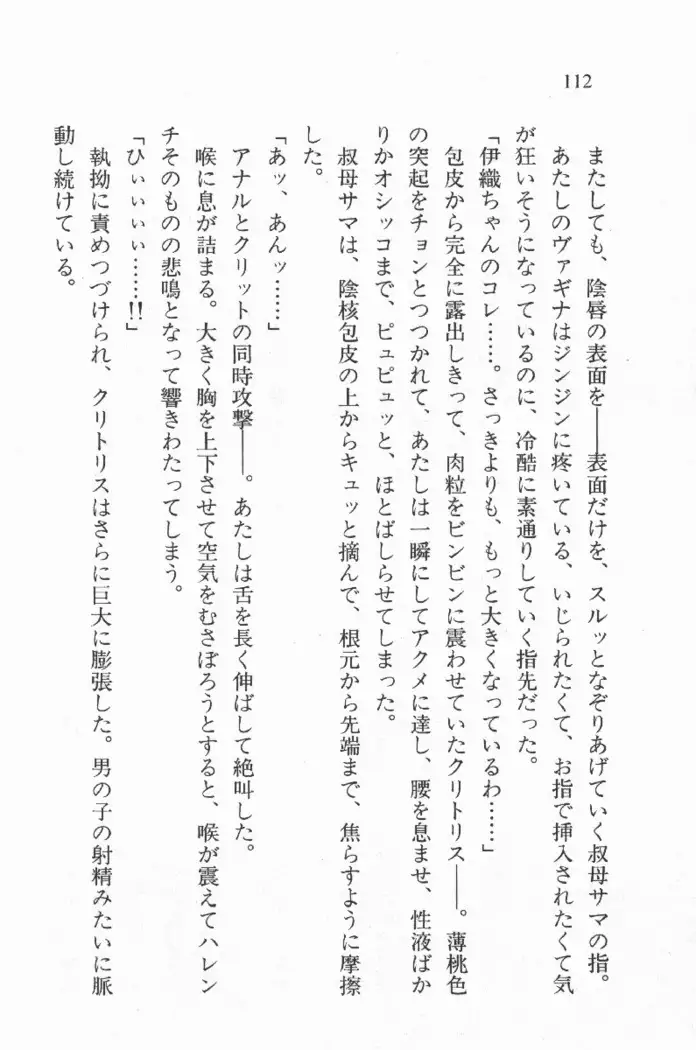 112
またしても、陰唇の表面を――表面だけを、スルッとなぞりあげていく叔母サマの指。
あたしのヴァギナはジンジンに疼いている、いじられたくて、お指で挿入されたくて気
が狂いそうになっているのに、冷酷に素通りしていく指先だった。
「伊織ちゃんのコレ……。さっきよりも、もっと大きくなっているわ……」
包皮から完全に露出しきって、肉粒をビンビンに震わせていたクリトリス――。薄桃色
の突起をチョンとつつかれて、あたしは一瞬にしてアクメに達し、腰を息ませ、性液ばか
りかオシッコまで、ピュピュッと、ほとばしらせてしまった。
叔母サマは、陰核包皮の上からキュッと摘んで、根元から先端まで、焦らすように摩擦
した。
「あッ、あんッ……」
アナルとクリットの同時攻撃――。あたしは舌を長く伸ばして絶叫した。
喉に息が詰まる。大きく胸を上下させて空気をむさぼろうとすると、喉が震えてハレン
チそのものの悲鳴となって響きわたってしまう。
「ひぃぃぃぃ……!!」
執拗に責めつづけられ、クリトリスはさらに巨大に膨張した。男の子の射精みたいに脈
動し続けている。